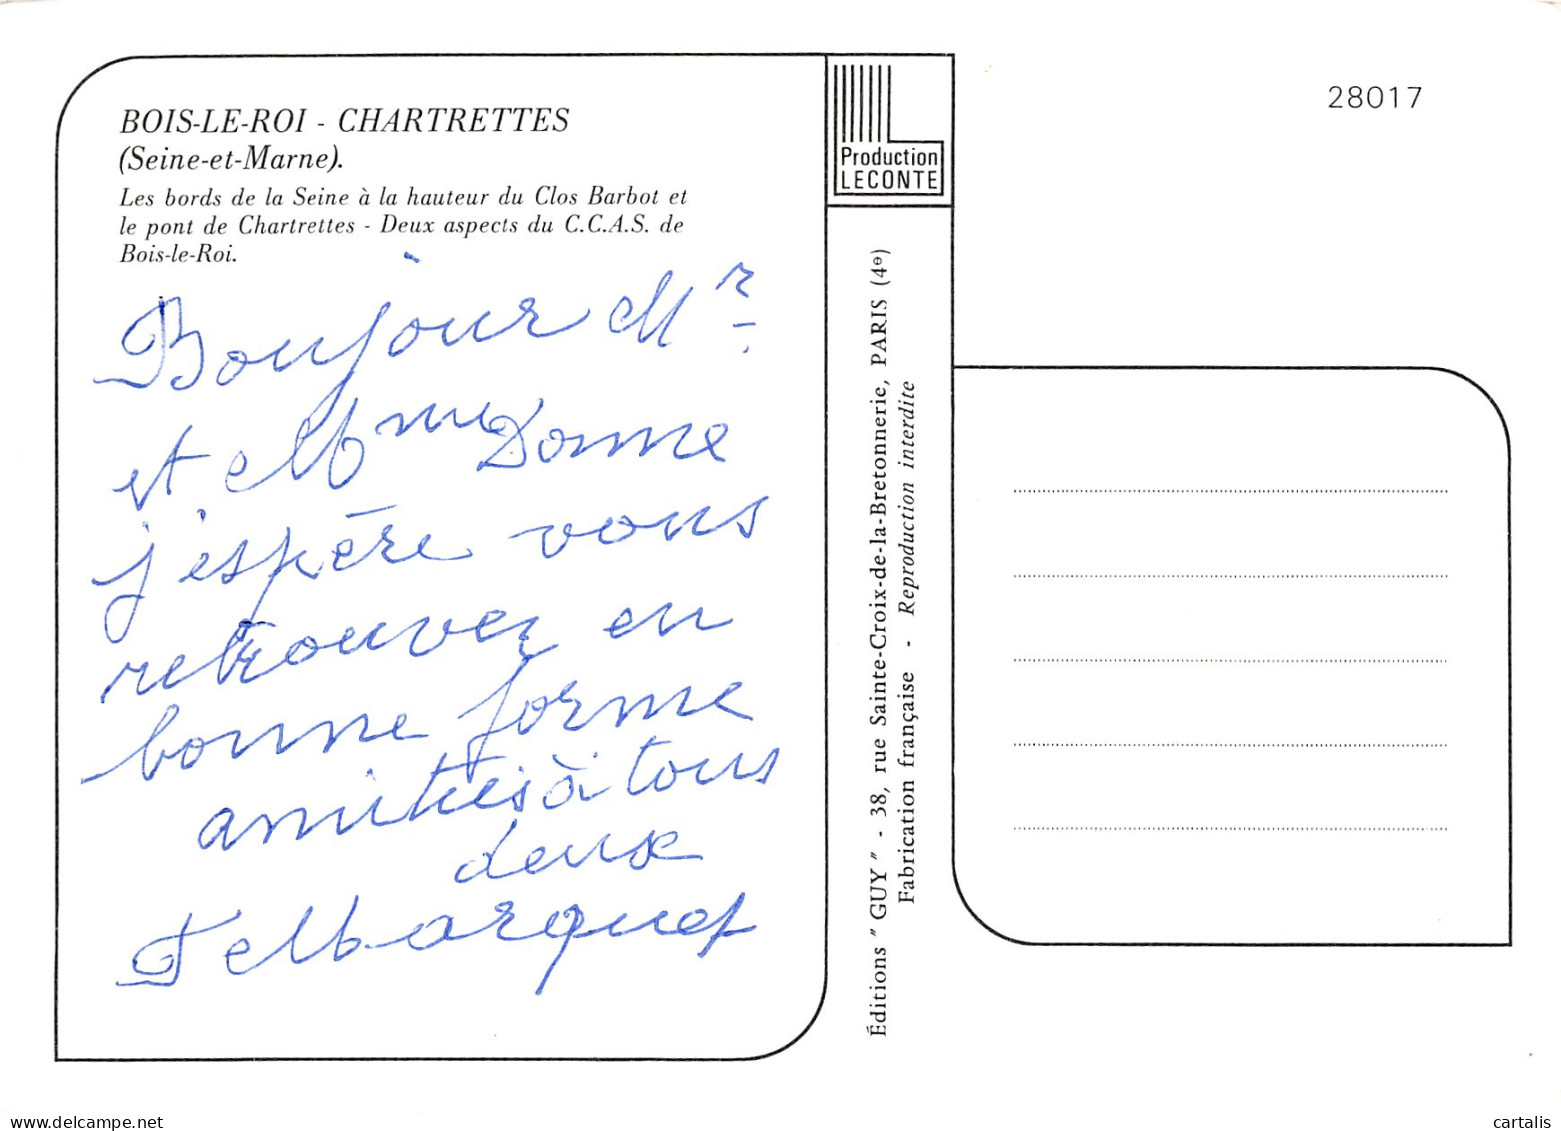 BOIS-LE-ROI - CHARTRETTES
(Seine-et-Marne).
Les bords de la Seine à la hauteur du Clos Barbot et
le pont de Chartrettes - Deux aspects du C.C.A.S. de
Bois-le-Roi.
Bonjour Mr.
et Mme Donne
j'espère vous
retrouver en
bonne forme
amitiés à tous
deux
Marquet
Production
LECONTE
Éditions "GUY" - 38, rue Sainte-Croix-de-la-Bretonnerie, PARIS (4e)
Fabrication française - Reproduction interdite
28017
www.delcampe.net
cartalis